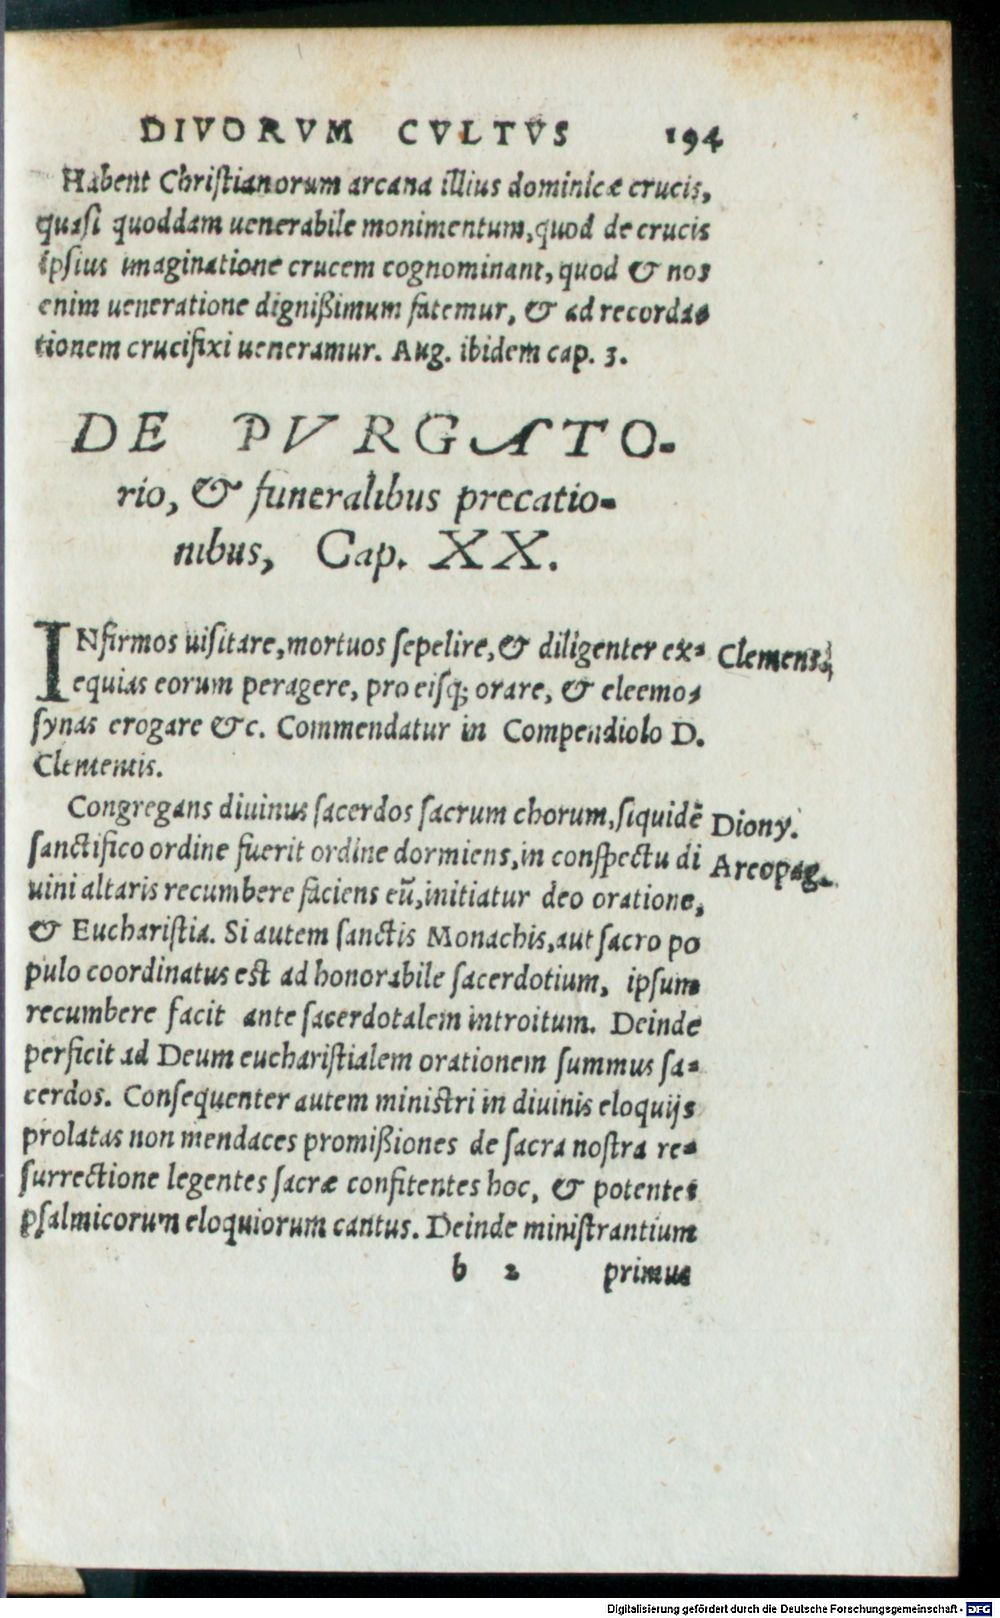 DIVORVM CVLTVS 194
Habent Christianorum arcana illius dominicæ crucis,
quasi quoddam uenerabile monimentum, quod de crucis
ipsius imaginatione crucem cognominant, quod & nos
enim ueneratione dignißimum fatemur, & ad recorda-
tionem crucifixi ueneramur. Aug. ibidem cap. 3.
DE PVRGATO-
rio, & funeralibus precatio-
nibus, Cap. XX.
INfirmos uisitare, mortuos sepelire, & diligenter ex- Clemens
equias eorum peragere, pro eisq; orare, & eleemo-
synas erogare &c. Commendatur in Compendiolo D.
Clementis.
Congregans diuinus sacerdos sacrum chorum, siquidē Diony.
sanctifico ordine fuerit ordine dormiens, in conspectu di Areopag.
uini altaris recumbere faciens eũ, initiatur deo oratione,
& Eucharistia. Si autem sanctis Monachis, aut sacro po
pulo coordinatus est ad honorabile sacerdotium, ipsum
recumbere facit ante sacerdotalem introitum. Deinde
perficit ad Deum eucharistialem orationem summus sa-
cerdos. Consequenter autem ministri in diuinis eloquijs
prolatas non mendaces promißiones de sacra nostra re-
surrectione legentes sacræ confitentes hoc, & potentes
psalmicorum eloquiorum cantus. Deinde ministrantium
b 2 primus
Digitalisierung gefördert durch die Deutsche Forschungsgemeinschaft - DFG